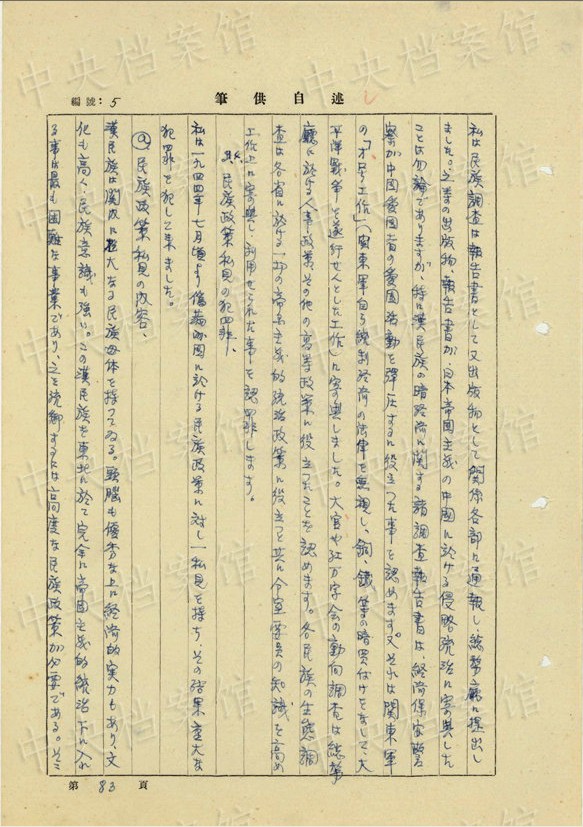 編號：5
筆供述自
私は民族調査は報告書として又出版物として関係各部に通報し、総務廳に提出し
ました。之等の出版物、報告書が、日本帝国主義の中國に於ける侵略統治に寄与した
ことは勿論でありますが、特に漢民族の暗経済に関する諸調査報告書は、経済保安警
察が中國愛國者の愛國活動を弾圧するに役立つた事を認めます。又それは関東軍
の「才号工作」（関東軍自ら統制経済の法律を無視し、銅、鐵等の暗買付けをなして、大
平洋戦争を遂行せんとした工作）に寄与しました。大官や紅万字会の動向調査は総務
廳に於ける人事政策、その他の高等政策に役立つたことを認めます。各民族の生態調
査は各省に於ける一切の帝国主義的統治政策に役立つと共に分室要員の知識を高め
工作上に寄与し、利用せられた事を認罪します。
其六、民族政策私見の犯罪、
私は一九四四年七月頃より偽満州国に於ける民族政策に対し一私見を持ち、その結果重大な
犯罪を犯して来ました。
ⓐ民族政策私見の内容、
漢民族は関内に厖大なる民族母体を持つてゐる。頭腦も優秀な上に経済的実力もあり、文
化も高く、民族意識も強い。この漢民族を東北に於て完全に帝国主義的統治下に入れ
る事は最も困難な事業であり、之を統御するには高度な民族政策が必要である。そこ
第83頁
中央档案馆